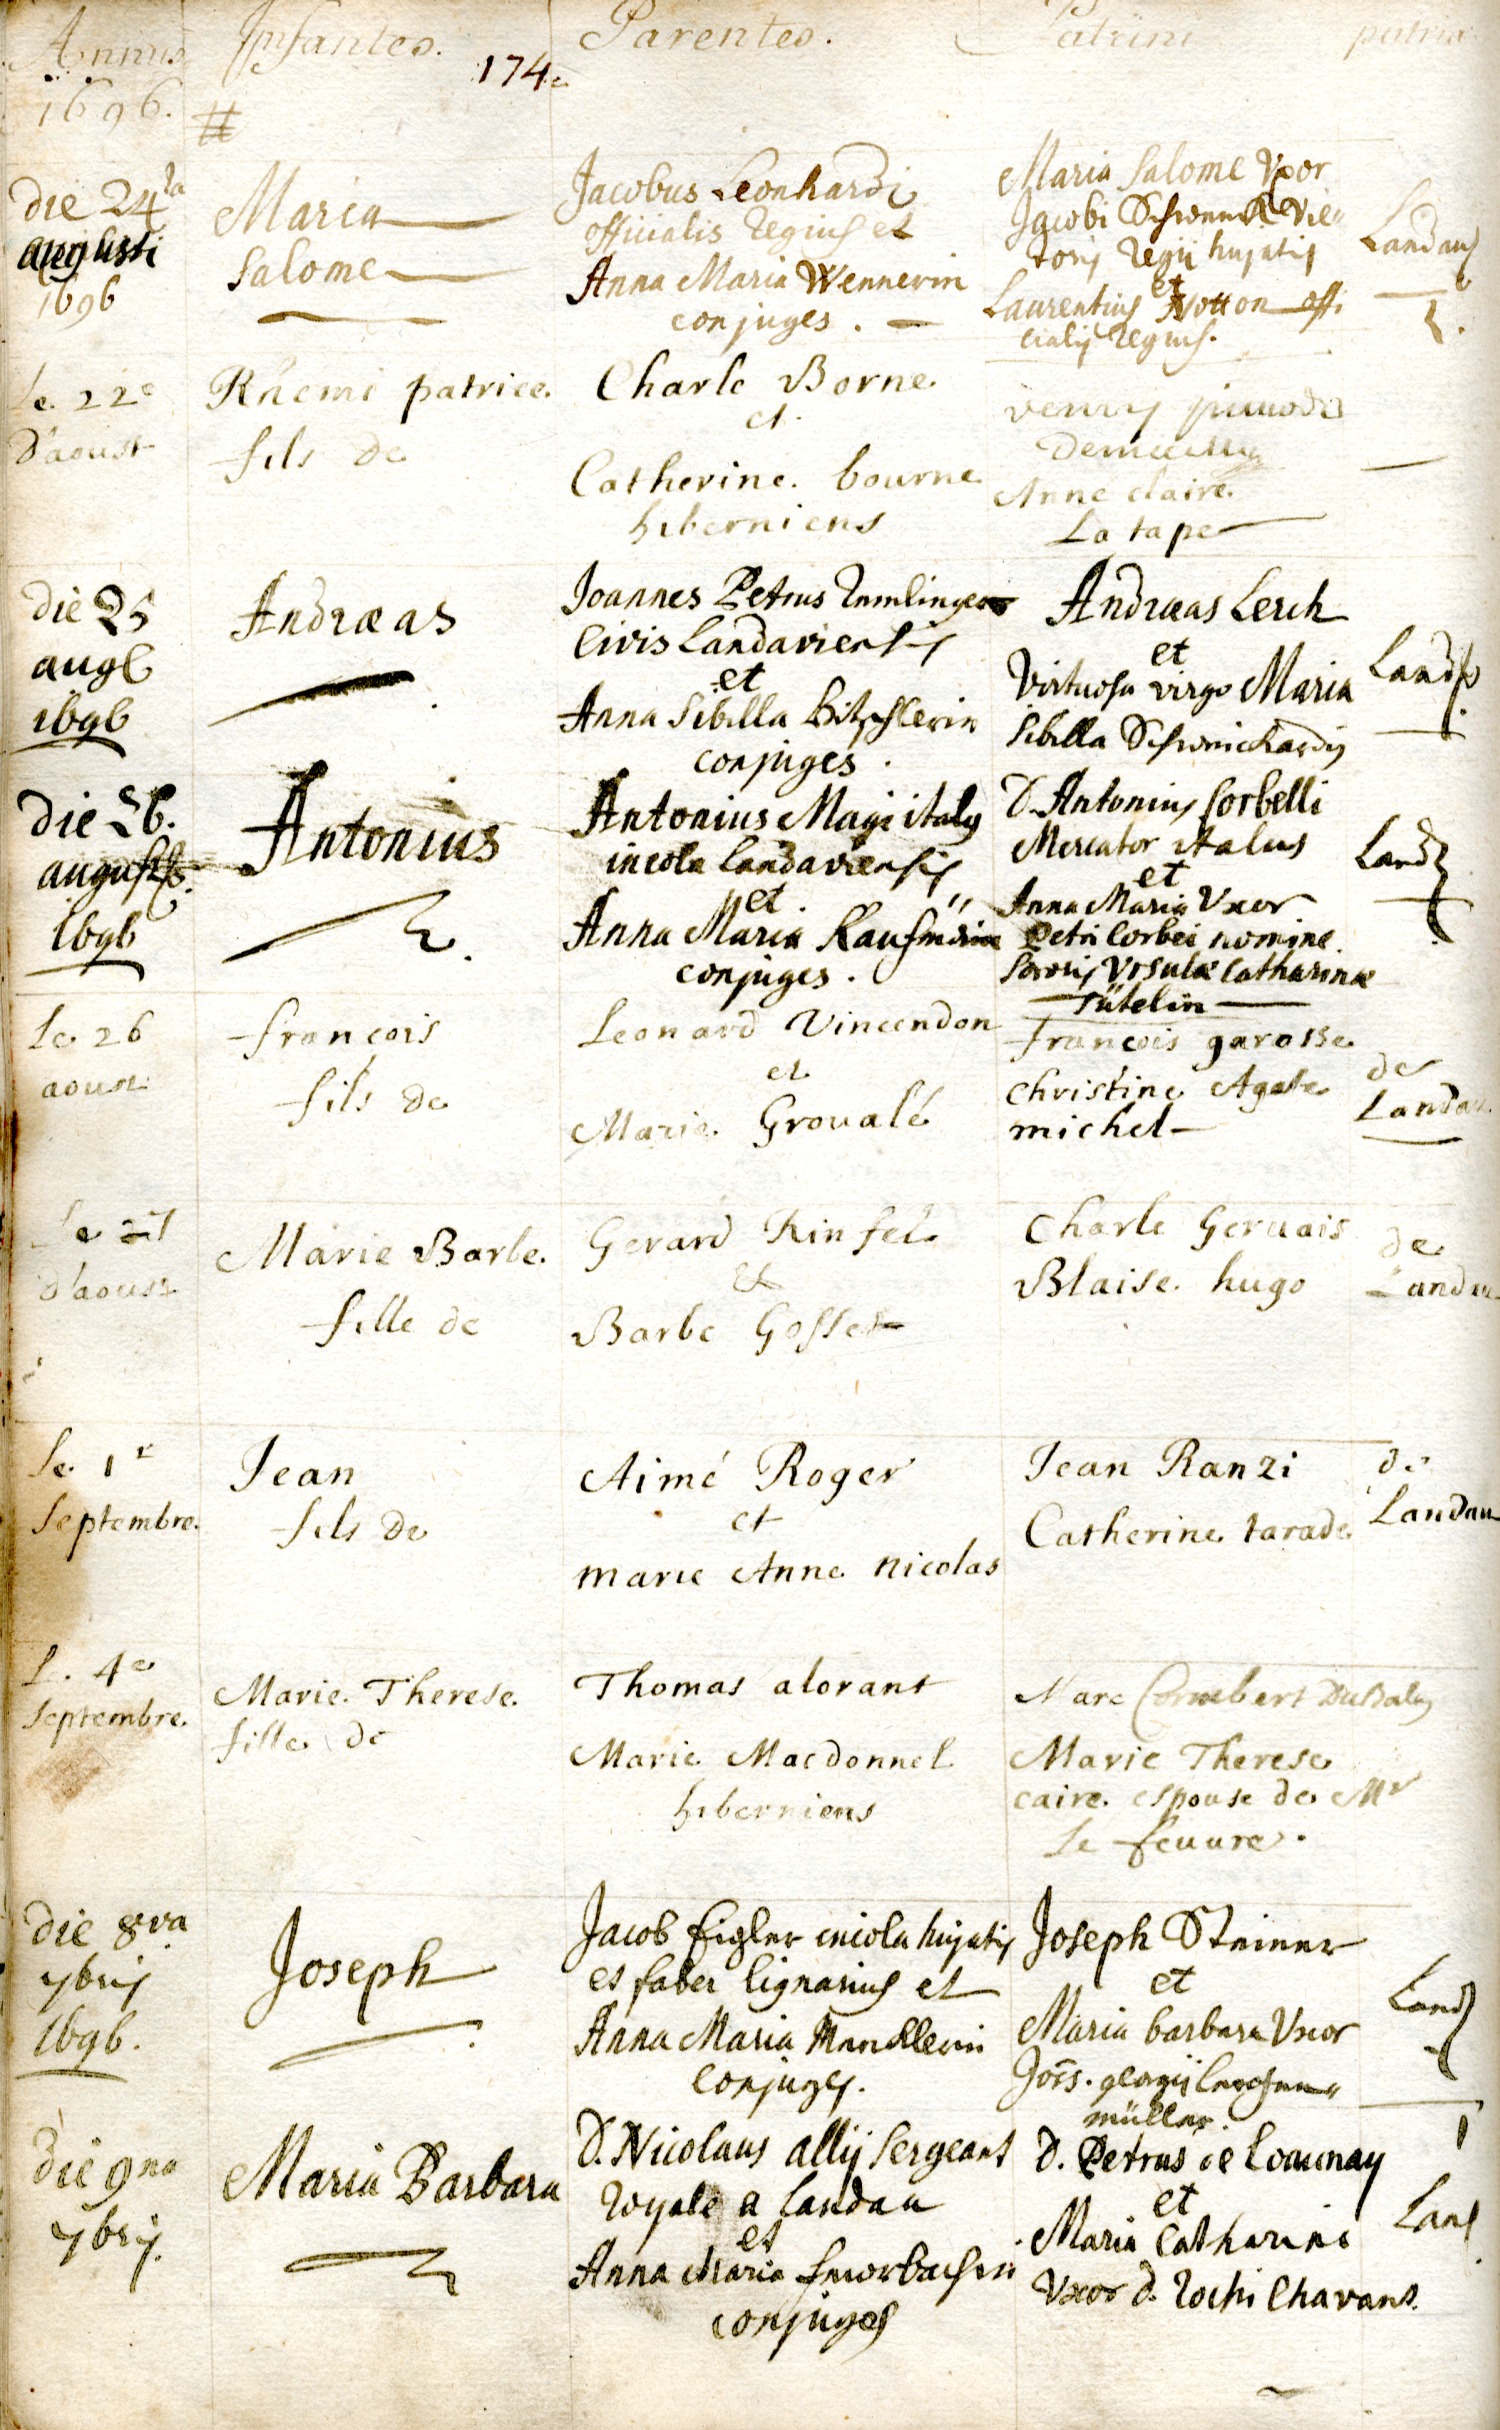 Annus Infantes. Parentes. Patrini patria
174
1696. #
die 24ta
augusti
1696
Maria
Salome
Jacobus Leonhardi
officialis regius et
Anna Maria Wennerin
conjuges.
Maria Salome Vxor
Jacobi Vic-
toris regii hujatis
et
Laurentius Notton offi
cialis regius.
Landau
Le 22e
d'aoust
Rhemi patrice
fils de
Charle Borne
et
Catherine bourne
hiberniens
Anne claire
La tape
die 25
aug
1696
Andræas
Joannes Petrus
Civis Landaviensis
et
Anna Sibilla
conjuges.
Andræas Lerch
et
Virtuosa virgo Maria
Sibilla
Land
die 26.
august
1696
Antonius
Antonius Magi italy
incola landaviensis
et
Anna Maria
conjuges.
D. Antonius Corbelli
Mercator italus
et
Anna Maria Vxor
Petri Corbei nomine
Sororis Vrsulæ Catharinæ
Land
Le 26
aoust
francois
fils de
Leonard Vincendon
et
Marie Groualé
francois garosse
Christine Agate
michel
de
Landau
Le 27
d'aoust
Marie Barbe
fille de
Gerard Rinfel
et
Barbe Gosset
Charle Geruais
Blaise hugo
de
Landau
Le 1r
Septembre
Jean
fils de
Aimé Roger
et
marie Anne Nicolas
Jean Ranzi
Catherine tarade
de
Landau
L. 4e
Septembre
Marie Therese
fille de
Thomas alorant
Marie Macdonnel
hiberniens
Marc
Marie Therese
caire espouse de Mr
le feuure.
die 8va
7bris
1696.
Joseph
Jacob Eigler incola hujatis
et faber lignarius et
Anna Maria
conjuges.
Joseph Steiner
et
Maria barbara Vxor
Jois. georgii
müller
Land
die 9na
7bris.
Maria Barbara
D. Nicolaus allij Sergeant
Royale a landau
et
Anna Maria
conjuges
D. Petrus de Launay
et
Maria Catharina
Vxor d. Rochi Chavans.
Land